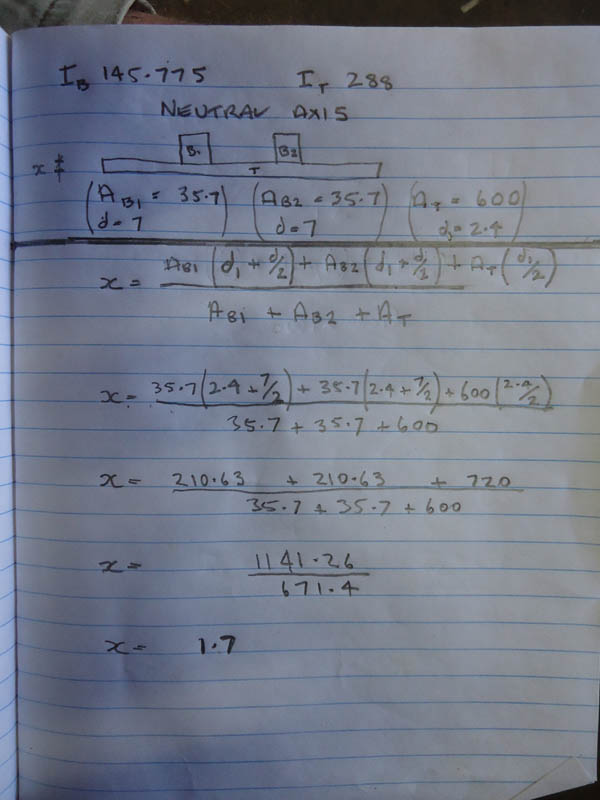 I_B 145.775 I_T 288
NEUTRAL AXIS
B1 B2
x T
(A_B1 = 35.7) (A_B2 = 35.7) (A_T = 600)
(d = 7) (d = 7) (d_1 = 2.4)
x = A_B1 (d_1 + d/2) + A_B2 (d_1 + d/2) + A_T (d_1/2)
A_B1 + A_B2 + A_T
x = 35.7 (2.4 + 7/2) + 35.7 (2.4 + 7/2) + 600 (2.4/2)
35.7 + 35.7 + 600
x = 210.63 + 210.63 + 720
35.7 + 35.7 + 600
x = 1141.26
671.4
x = 1.7